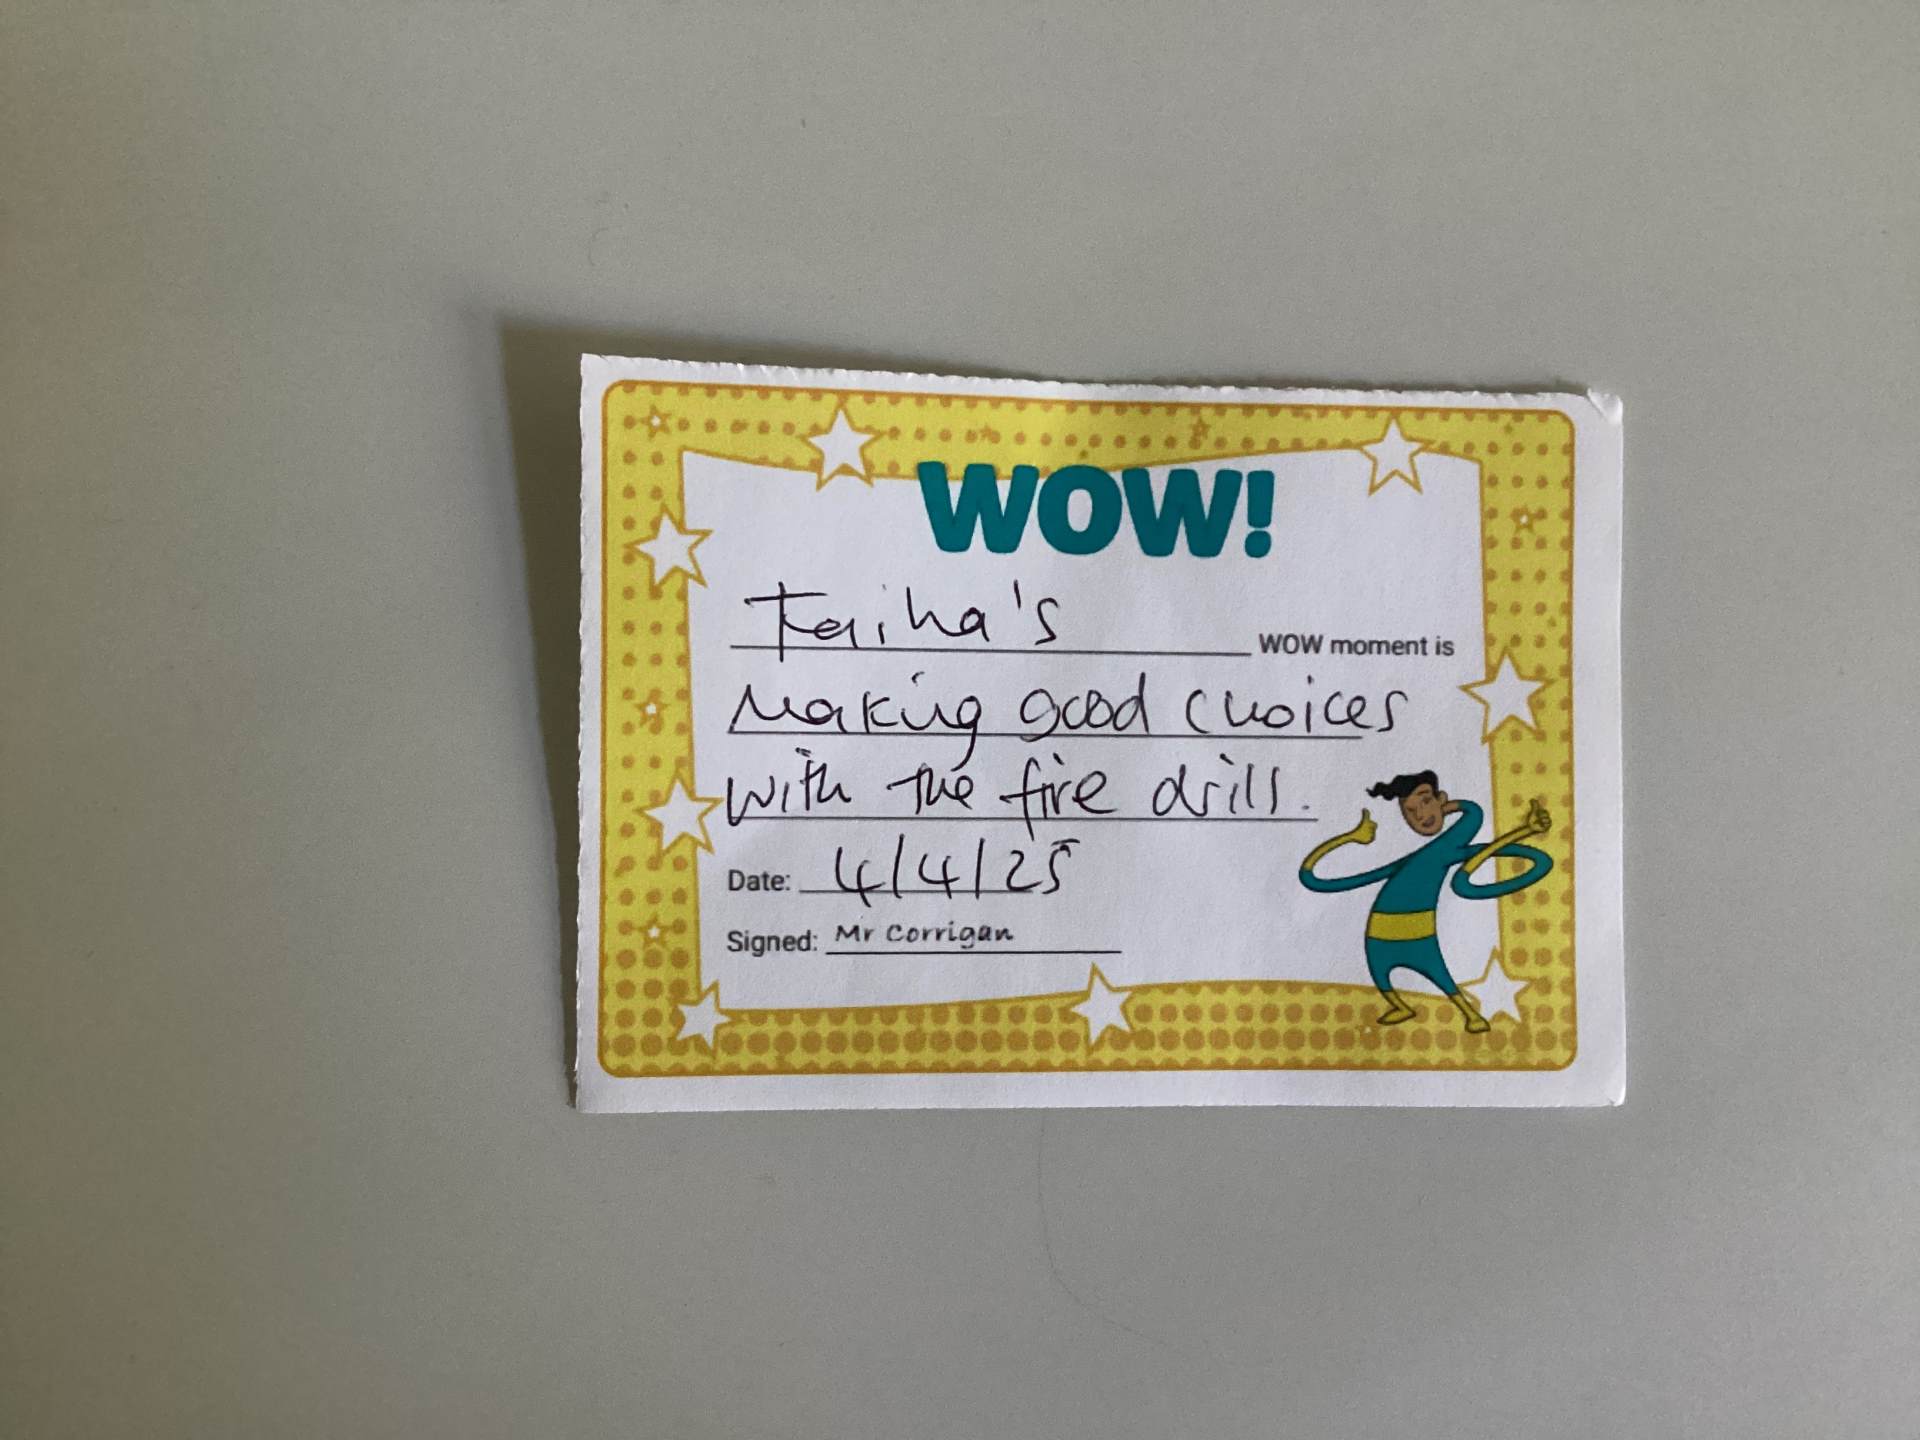 WOW!
Taiha's WOW moment is
Making good choices
with the fire drill.
Date: 4/4/25
Signed: Mr Corrigan